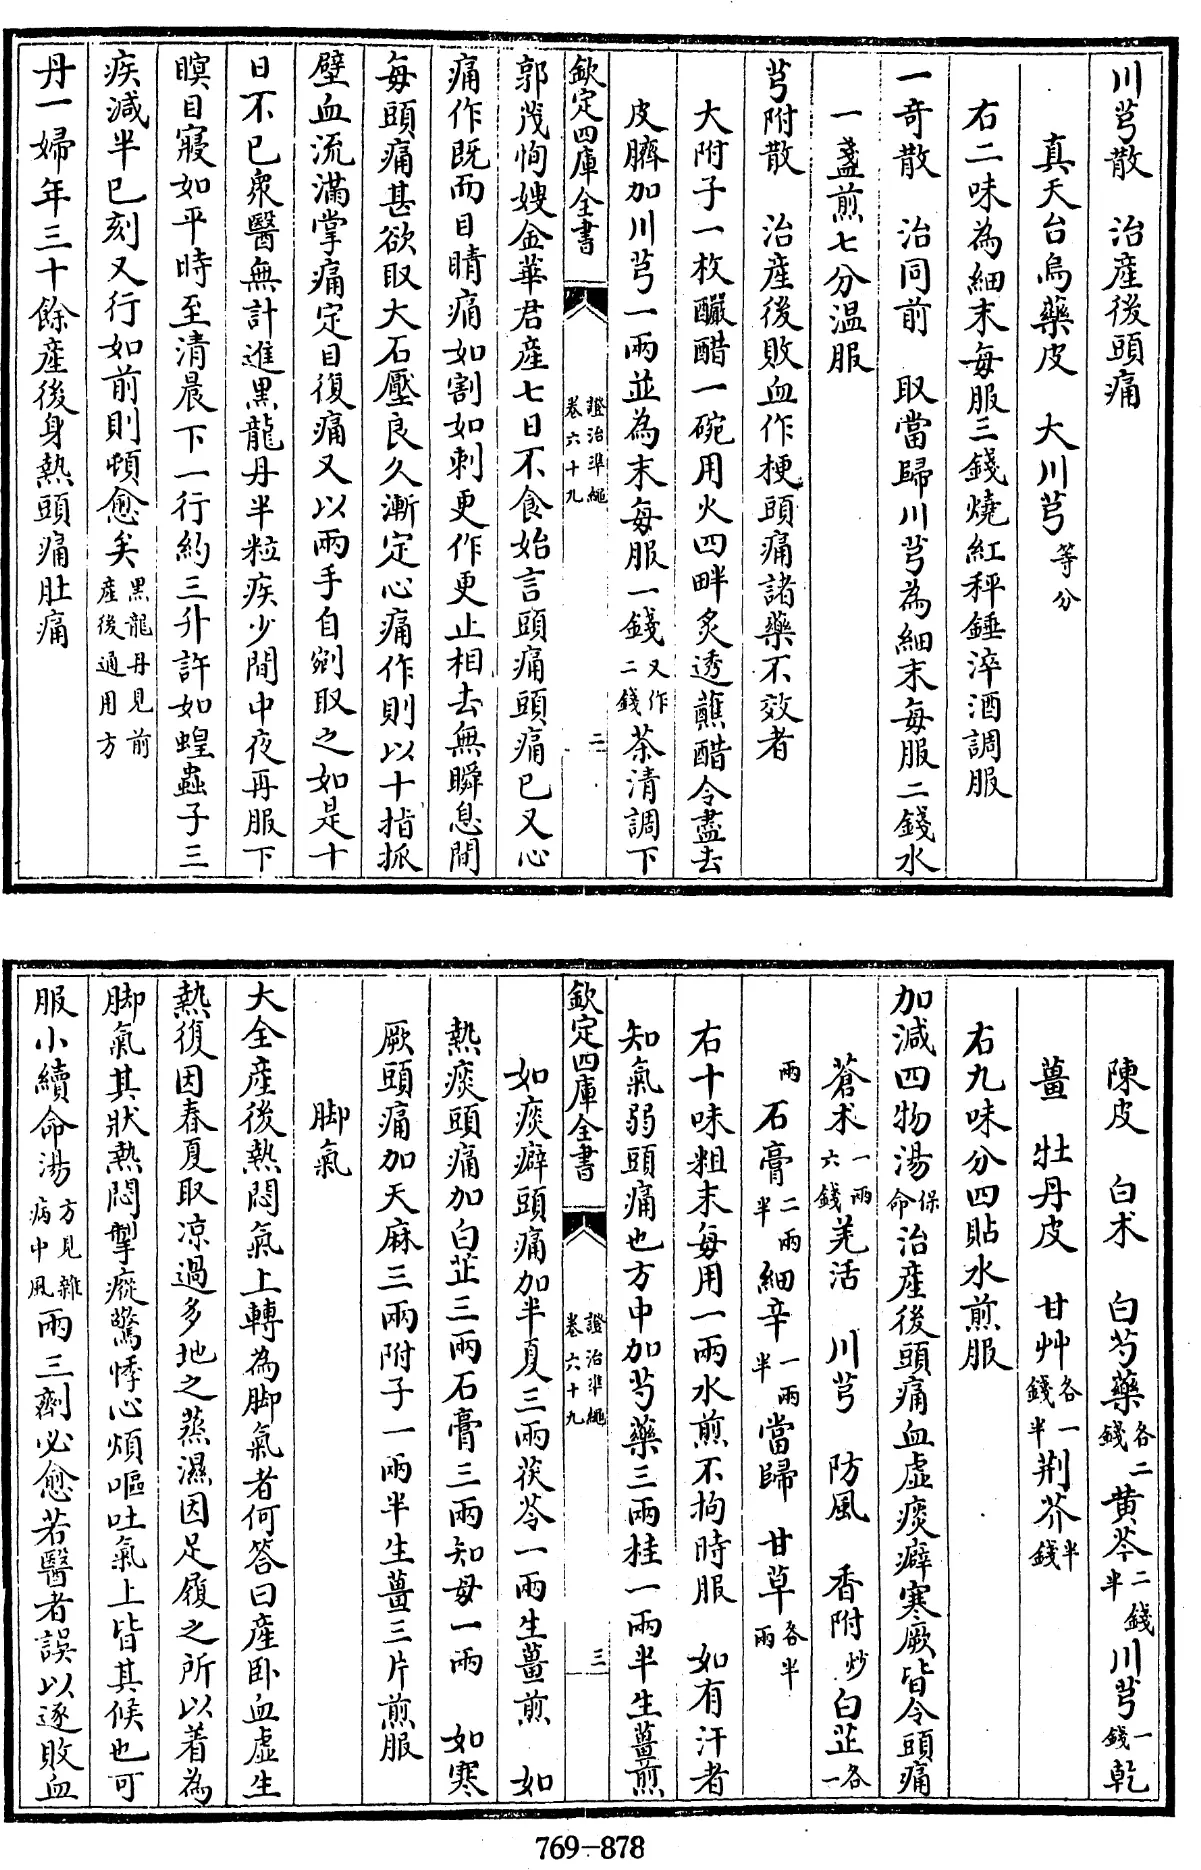 川芎散　治產後頭痛
真天台烏藥皮　大川芎等分
右二味為細末每服三錢燒紅秤錘淬酒調服
一奇散　治同前　取當歸川芎為細末每服二錢水
一盞煎七分温服
芎附散　治產後敗血作梗頭痛諸藥不效者
大附子一枚釅醋一碗用火四畔炙透蘸醋令盡去
皮臍加川芎一兩並為末每服一錢又作二錢茶清調下
欽定四庫全書　證治準繩卷六十九　二
郭茂恂嫂金華君產七日不食始言頭痛頭痛已又心
痛作既而目睛痛如割如刺更作更止相去無瞬息間
每頭痛甚欲取大石壓良久漸定心痛作則以十指抓
壁血流滿掌痛定目復痛又以兩手自剜取之如是十
日不已衆醫無計進黑龍丹半粒疾少間中夜再服下
瞑目寢如平時至清晨下一行約三升許如蝗蟲子三
疾減半巳刻又行如前則頓愈矣黑龍丹見前產後通用方
丹一婦年三十餘產後身熱頭痛肚痛
陳皮　白术　白芍藥各二錢黄芩二錢半川芎一錢乾
薑　牡丹皮　甘艸各一錢半荆芥半錢
右九味分四貼水煎服
加減四物湯保命治產後頭痛血虛痰癖寒厥皆令頭痛
蒼术一兩六錢羌活　川芎　防風　香附炒白芷各一
兩石膏二兩半細辛一兩半當歸　甘草各半兩
右十味粗末每用一兩水煎不拘時服　如有汗者
知氣弱頭痛也方中加芍藥三兩桂一兩半生薑煎
欽定四庫全書　證治準繩卷六十九　三
如痰癖頭痛加半夏三兩茯苓一兩生薑煎　如
熱痰頭痛加白芷三兩石膏三兩知母一兩　如寒
厥頭痛加天麻三兩附子一兩半生薑三片煎服
脚氣
大全產後熱悶氣上轉為脚氣者何答曰產卧血虛生
熱復因春夏取凉過多地之蒸濕因足履之所以着為
脚氣其狀熱悶掣瘲驚悸心煩嘔吐氣上皆其候也可
服小續命湯方見雜病中風兩三劑必愈若醫者誤以逐敗血
769-878